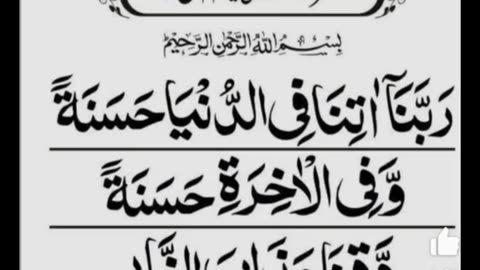 بِسْمِ اللهِ الرَّحْمٰنِ الرَّحِيْمِ
رَبَّنَآ اٰتِنَا فِی الدُّنْیَا حَسَنَةً
وَّفِی الْاٰخِرَةِ حَسَنَةً
وَّقِنَا عَذَابَ النَّارِ